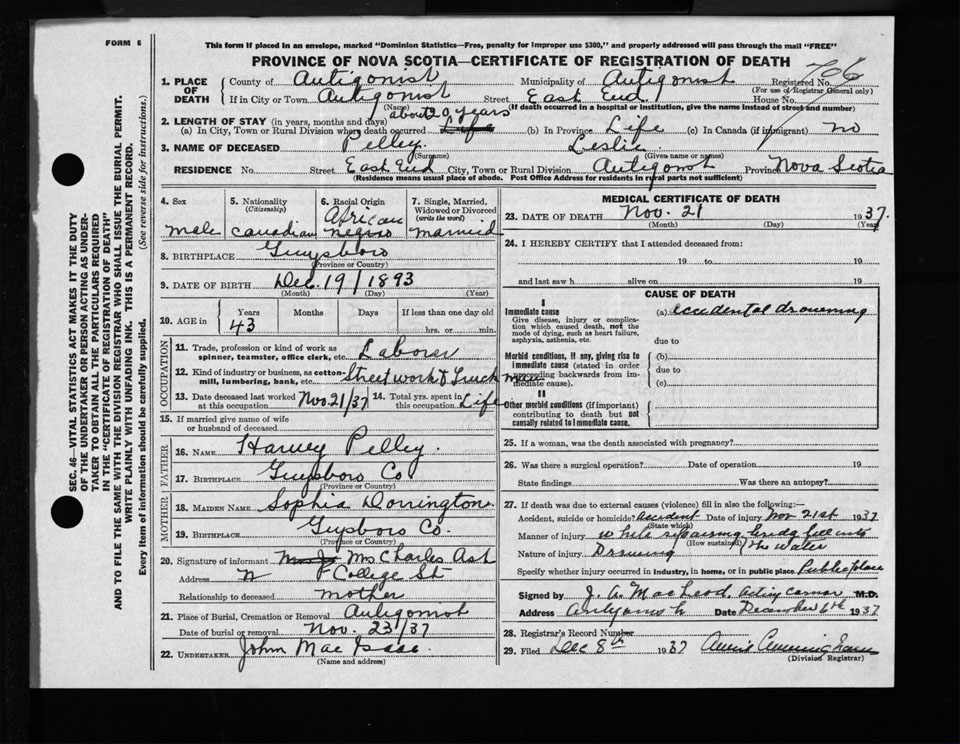 FORM 6
This form if placed in an envelope, marked "Dominion Statistics—Free, penalty for improper use $300," and properly addressed will pass through the mail "FREE"
PROVINCE OF NOVA SCOTIA—CERTIFICATE OF REGISTRATION OF DEATH
1. PLACE OF DEATH County of Antigonish Municipality of Antigonish Registered No. 706
(For use of Registrar General only)
If in City or Town Antigonish Street East End House No.
(Name) (If death occurred in a hospital or institution, give name instead of street and number)
2. LENGTH OF STAY (in years, months and days) about 20 years
(a) In City, Town or Rural Division where death occurred Life (b) In Province Life (c) In Canada (if immigrant) no
3. NAME OF DECEASED Pelley. Leslie.
(Surname) (Given name or names)
RESIDENCE No. Street East End City, Town or Rural Division Antigonish Province Nova Scotia
(Residence means usual place of abode. Post Office Address for residents in rural parts not sufficient)
4. Sex male
5. Nationality (Citizenship) Canadian
6. Racial Origin African negro
7. Single, Married, Widowed or Divorced (write the word) married
8. BIRTHPLACE Guysboro
(Province or Country)
9. DATE OF BIRTH Dec. 19/1893
(Month) (Day) (Year)
10. AGE in Years 43 Months Days If less than one day old
hrs. or min.
OCCUPATION
11. Trade, profession or kind of work as spinner, teamster, office clerk, etc. Laborer
12. Kind of industry or business, as cotton-mill, lumbering, bank, etc. Street work & Truck man
13. Date deceased last worked at this occupation Nov 21/37 14. Total yrs. spent in this occupation Life
15. If married give name of wife or husband of deceased
FATHER
16. NAME Harvey Pelley.
17. BIRTHPLACE Guysboro Co
(Province or Country)
MOTHER
18. MAIDEN NAME Sophia Dorrington
19. BIRTHPLACE Guysboro Co.
(Province or Country)
20. Signature of informant Mrs Charles Ash
Address College St
Relationship to deceased mother
21. Place of Burial, Cremation or Removal Antigonish
Date of burial or removal Nov. 23/37
22. UNDERTAKER John Mac Isaac
(Name and address)
MEDICAL CERTIFICATE OF DEATH
23. DATE OF DEATH Nov. 21 1937.
(Month) (Day) (Year)
24. I HEREBY CERTIFY that I attended deceased from:
19 to 19
and last saw h alive on 19
CAUSE OF DEATH
I
Immediate cause
Give disease, injury or complication which caused death, not the mode of dying, such as heart failure, asphyxia, asthenia, etc.
(a) accidental drowning
due to
Morbid conditions, if any, giving rise to immediate cause (stated in order proceeding backwards from immediate cause).
(b)
due to
(c)
II
Other morbid conditions (if important) contributing to death but not causally related to immediate cause.
25. If a woman, was the death associated with pregnancy?
26. Was there a surgical operation? Date of operation 19
State findings Was there an autopsy?
27. If death was due to external causes (violence) fill in also the following:—
Accident, suicide or homicide? Accident Date of injury Nov 21st 1937
(State which)
Manner of injury while repairing bridge fell into the water
(How sustained)
Nature of injury Drowning
Specify whether injury occurred in industry, in home, or in public place Public place
Signed by J. A. MacLeod, acting coroner M.D.
Address Antigonish Date December 6th 1937
28. Registrar's Record Number
29. Filed Dec 8th 1937
(Division Registrar)
SEC. 46—VITAL STATISTICS ACT MAKES IT THE DUTY
OF THE UNDERTAKER OR PERSON ACTING AS UNDERTAKER TO OBTAIN ALL THE PARTICULARS REQUIRED
IN THE "CERTIFICATE OF REGISTRATION OF DEATH"
AND TO FILE THE SAME WITH THE DIVISION REGISTRAR WHO SHALL ISSUE THE BURIAL PERMIT.
WRITE PLAINLY WITH UNFADING INK. THIS IS A PERMANENT RECORD.
Every item of information should be carefully supplied. (See reverse side for instructions.)